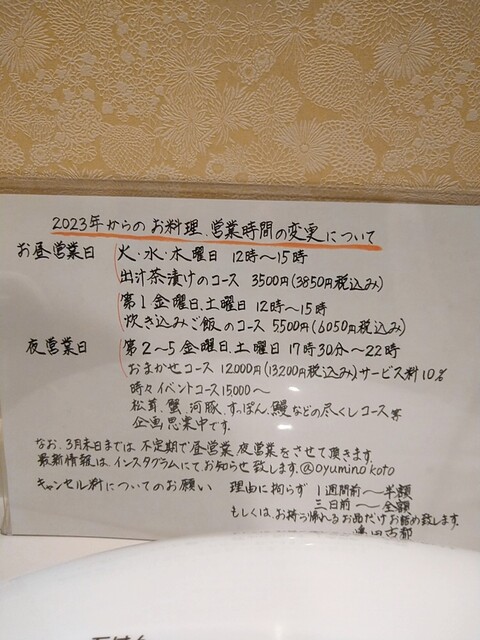 2023年からのお料理、営業時間の変更について
お昼営業日 火・水・木曜日 12時〜15時
出汁茶漬けのコース 3500円(3850円税込み)
第1金曜日、土曜日 12時〜15時
炊き込みご飯のコース 5500円(6050円税込み)
夜営業日 第2〜5金曜日、土曜日 17時30分〜22時
おまかせコース 12000円(13200円税込み)サービス料10%
時々イベントコース15000〜
松茸、蟹、河豚、すっぽん、鰻などの尽くしコース等
企画思案中です。
なお、3月末日までは不定期で昼営業、夜営業をさせて頂きます。
最新情報は、インスタグラムにてお知らせ致します。@oyumino koto
キャンセル料についてのお願い 理由に拘らず 1週間前〜半額
三日前〜全額
もしくは、お持ち帰れるお品だけお詰め致します。